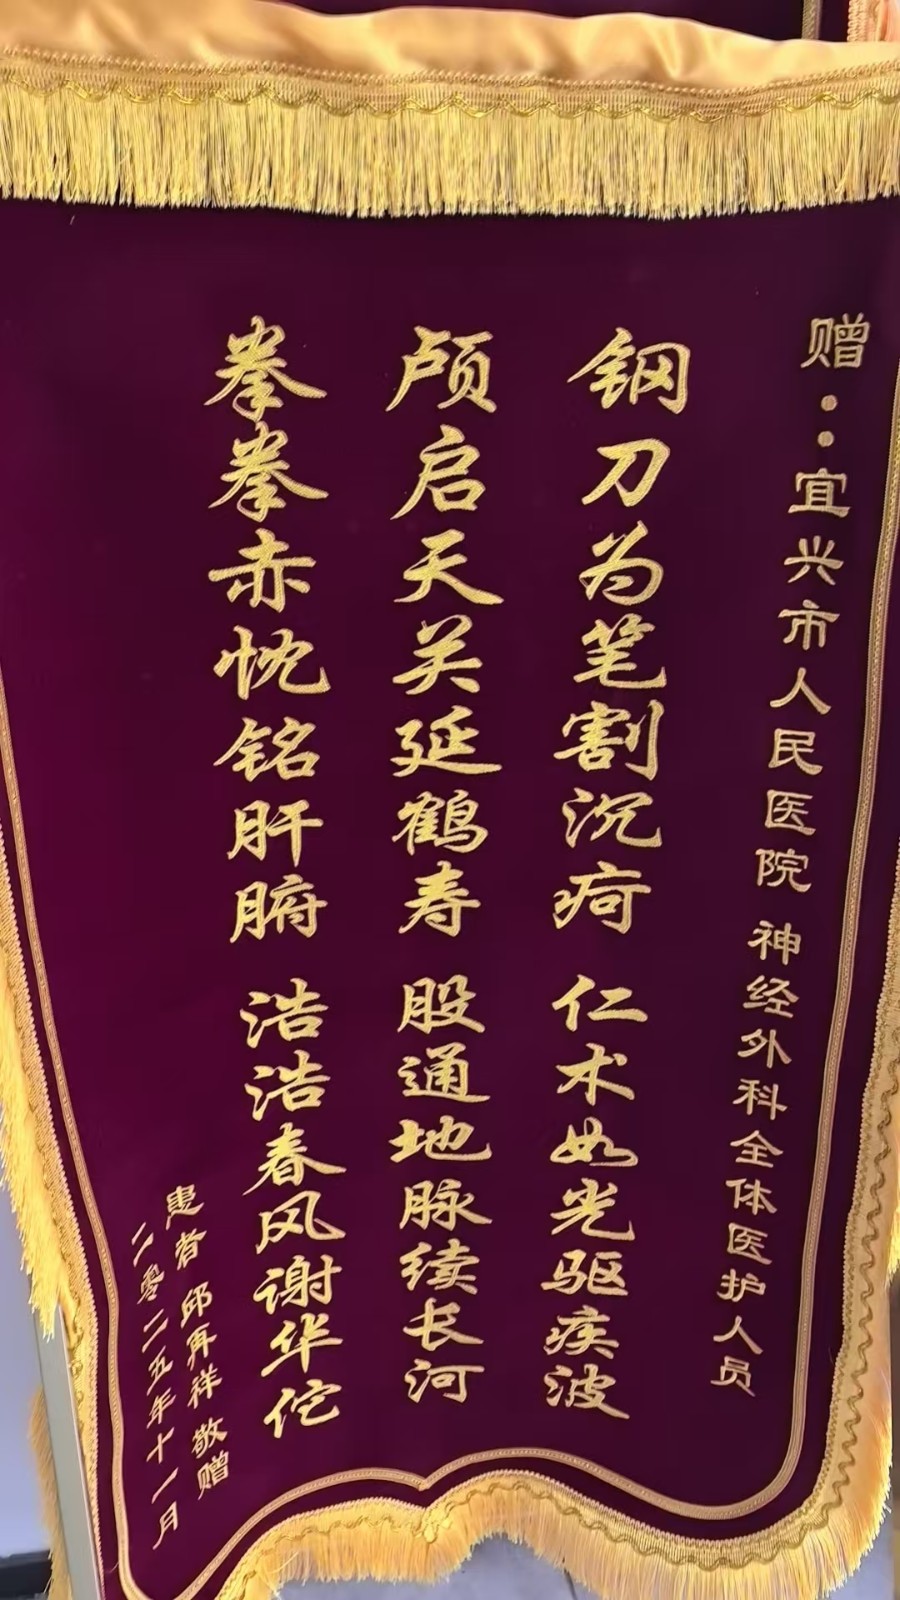 赠：宜兴市人民医院 神经外科全体医护人员
钢刀为笔割沉疴 仁术如光驱疾波
颅启天关延鹤寿 股通地脉续长河
拳拳赤忱铭肝腑 浩浩春风谢华佗
患者 邱再祥 敬赠
二零二五年十一月